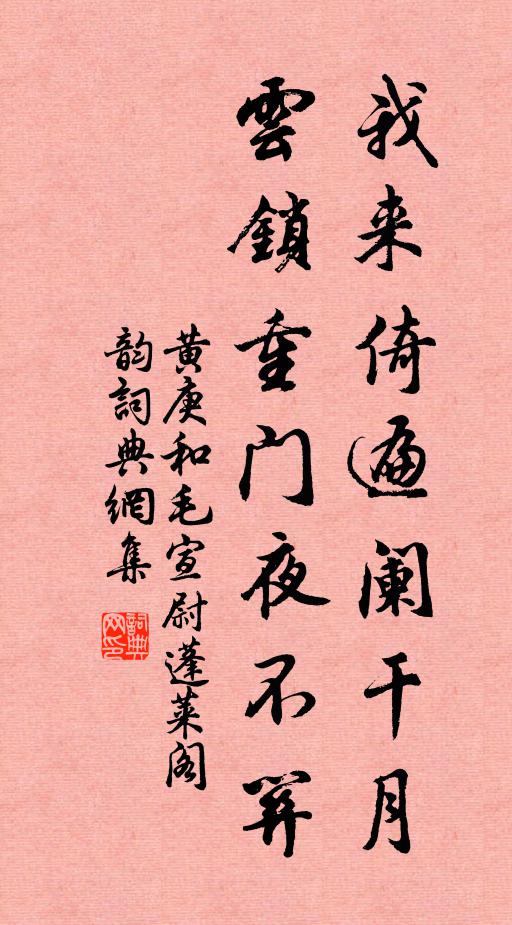 我来倚遍阑干月
雲鎖重门夜不開
黄庚和毛宣尉蓬莱阁
韵詞典網集
詞典网印